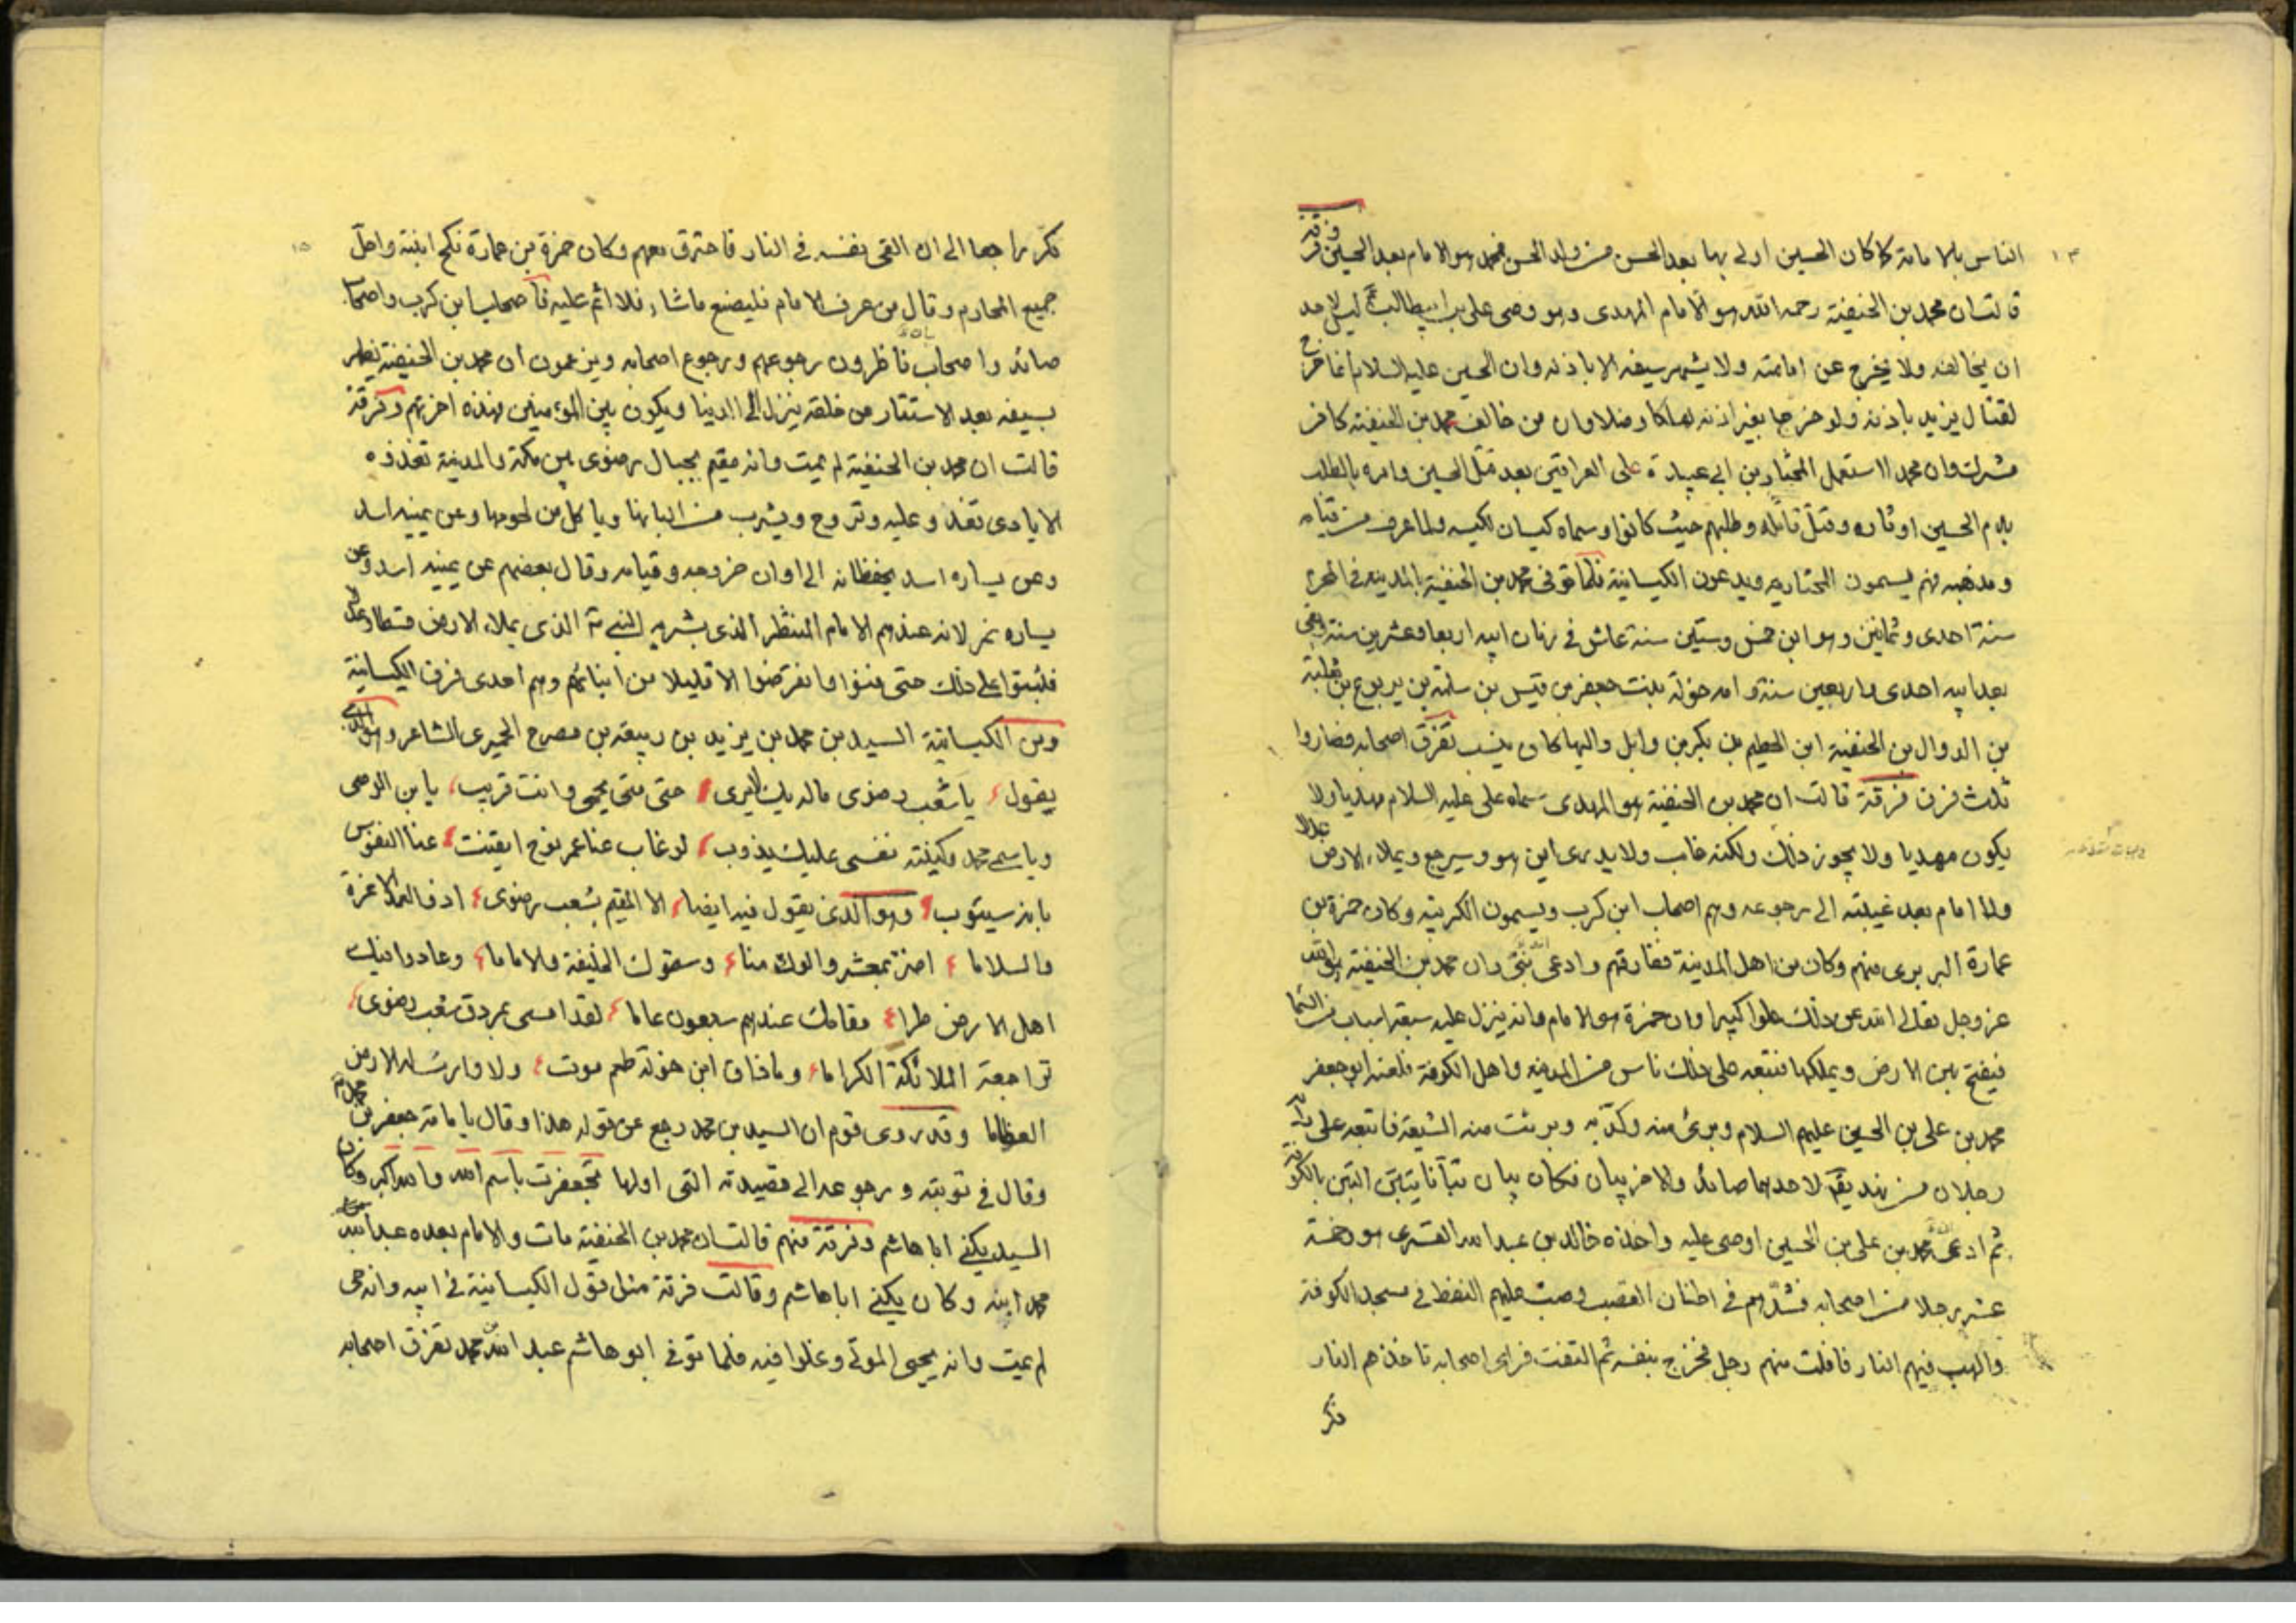 ١٣
وفرقة
الناس بالامامة كما كان الحسين اولى بها بعد الحسن من ولد الحسن فمحمد هو الامام بعد الحسين
قالت ان محمد بن الحنفية رحمه الله هو الامام المهدى وهو وصى على بن ابيطالب ليس لاحد
ان يخالفه ولا يخرج عن امامته ولا يشهر سيفه الا باذنه وان الحسين عليه السلام انما خرج
لقتال يزيد باذنه ولو خرجا بغير اذنه لهلكا وضلا وان من خالف محمد بن الحنفية كافر
مشرك وان محمدا استعمل المختار بن ابى عبيدة على العراقين بعد قتل الحسين وامره بالطلب
بدم الحسين او ثاره وقتل قاتله وطلبهم حيث كانوا وسماه كيسان لكيسه ولما عرف من قيامه
ومذهبه فهم يسمون المختاريه ويدعون الكيسانية فلما توفى محمد بن الحنفية بالمدينه فى المحرم
سنة احدى وثمانين وهو ابن خمس وستين سنة عاش فى زمان ابيه اربعا وعشرين سنة وبقى
بعد ابيه احدى واربعين سنة وامه خولة بنت جعفر بن قيس بن سلمة بن يربوع بن ثعلبة
بن الدوال بن الحنفية ابن الحطيم بن بكر بن وايل واليها كان ينسب تفرق اصحابه فصاروا
ثلث فرق فرقة قالت ان محمد بن الحنفية هو المهدى سماه على عليه السلام مهديا ولا
يكون مهديا ولا يجوز ذلك ولكنه غاب ولا يدرى اين هو وسيرجع ويملاء الارض عدلا
ولا امام بعد غيبته الى رجوعه وهم اصحاب ابن كرب ويسمون الكربية وكان حمزة بن
عمارة البربرى منهم وكان من اهل المدينة ففارقهم وادعى انه نبى وان محمد بن الحنفية هو الله
عز وجل تعالى الله عن ذلك علوا كبيرا وان حمزة هو الامام وانه ينزل عليه سبعة اسباب من السما
فيفتح بهن الارض ويملكها فتبعه على ذلك ناس من المدينه واهل الكوفة فلعنه ابو جعفر
محمد بن على بن الحسين عليهم السلام وبرئ منه وكذبه وبرئت منه الشيعة فاتبعه على رايه
رجلان من نهد يقال لاحدهما صائد والاخر بيان فكان بيان تبانا يتبن التبن بالكوفة
ثم ادعى ان محمد بن على بن الحسين اوصى عليه واخذه خالد بن عبد الله القسرى هو وخمسة
عشر رجلا من اصحابه فشدهم فى اطنان القصب وصب عليهم النفط فى مسجد الكوفة
والهب فيهم النار فافلت منهم رجل فخرج بنفسه ثم التفت فراى اصحابه تاخذهم النار
فكر
١٥
فكر راجعا الى ان القى بنفسه فى النار فاحترق معهم وكان حمزة بن عمارة نكح ابنته واحل
جميع المحارم وقال من عرف الامام فليصنع ماشاء فلا اثم عليه فاصحاب ابن كرب واصحاب
صائد واصحاب بيان ناظرون رجوعهم ورجوع اصحابه ويزعمون ان محمد بن الحنفية يظهر
بسيفه بعد الاستتار من خلقه ينزل الى الدنيا ويكون بين المؤمنين فهذه اخرتهم وفرقة
قالت ان محمد بن الحنفية لم يمت وانه مقيم بجبال رضوى بين مكة والمدينة تغذوه
الايادى تغدو عليه وتروح ويشرب من البانها وياكل من لحومها وعن يمينه اسد
وعن يساره اسد يحفظانه الى اوان خروجه وقيامه وقال بعضهم عن يمينه اسد وعن
يساره نمر لانه عندهم الامام المنتظر الذى بشر به النبى الذى يملاء الارض قسطا وعدلا
فلبثوا على ذلك حتى فنوا وانقرضوا الا قليلا من ابنائهم وهم احدى فرق الكيسانية
ومن الكيسانية السيد بن محمد بن يزيد بن ربيعه بن مصرح الحميرى الشاعر وهو الذى
يقول يا شعب رضوى ما لديك لايرى حتى متى يحمى وانت قريب يا بن الوصى
ويا سمى محمد وكنيته نفسى عليك يذوب لو غاب عنا عمر نوح ايقنت عنا النفوس
بانه سيئوب وهو الذى يقول فيه ايضا الا المقيم بشعب رضوى
والسلاما اضر بمعشر والوك منا وسموك الخليفة والاماما وعادوا فيك
اهل الارض طرا مقامك عندهم سبعون عاما لقد امسى بمردق شعب رضوى
تراجعه الملائكة الكراما وما ذاق ابن خولة طعم موت ولا وارت له الارض
العظاما وقد روى قوم ان السيد بن محمد رجع عن قوله هذا وقال بامامة جعفر بن محمد
وقال فى توبته ورجوعه الى قصيدته التى اولها تجعفرت باسم الله والله اكبر وكان
السيد يكنى ابا هاشم وفرقة منهم قالت ان محمد بن الحنفية مات والامام بعده عبد الله بن
محمد ابنه وكان يكنى ابا هاشم وقالت فرقة مثل قول الكيسانية فى ابيه وانه حى
لم يمت وانه يحيى الموتى وغلوا فيه فلما توفى ابو هاشم عبد الله بن محمد تفرق اصحابه